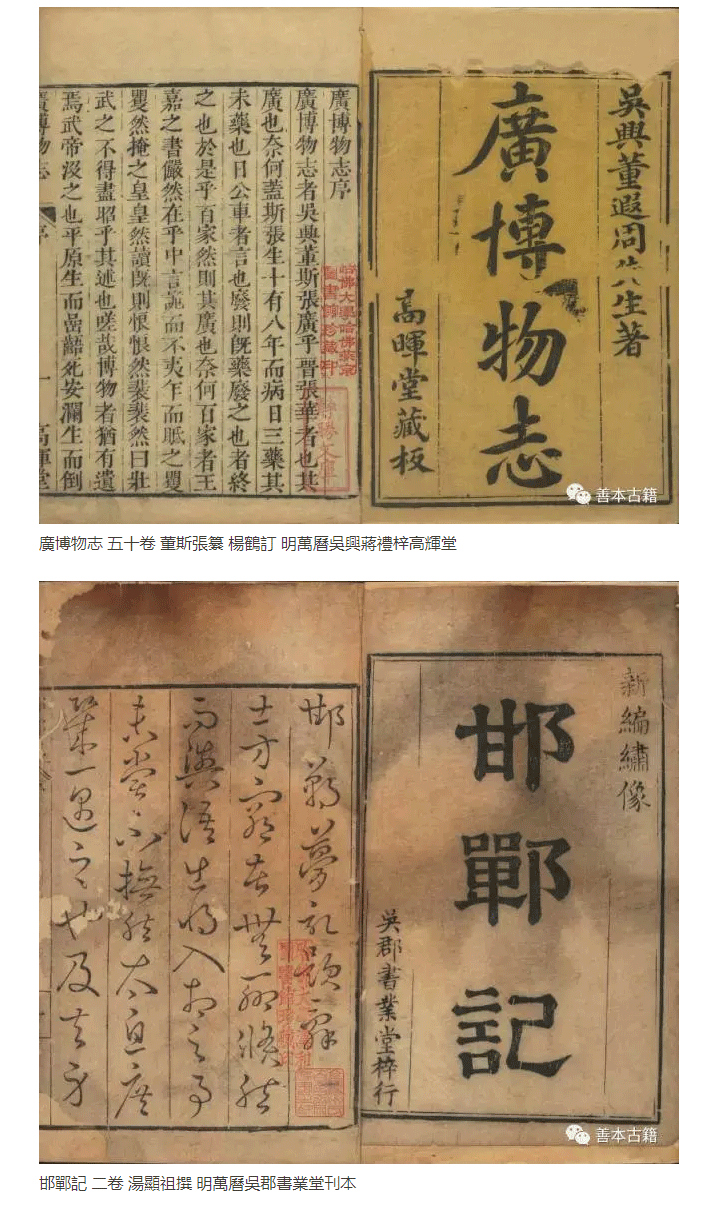 吳興董遐周先生著
廣博物志
高暉堂藏板
廣博物志序
廣博物志者吳興董斯張廣乎晉張華者也其
廣也奈何蓋斯張生十有八年而病日三藥其
未藥也日公車者言也廢則旣藥廢之也者終
之也於是乎百家然則其廣也奈何百家者王
嘉之書儼然在乎中言詭而不夷乍而眡之矍
矍然掩之皇皇然讀旣則悢悢然裴裴然曰壯
武之不得盡昭乎其述也嗟哉博物者猶有遺
焉武帝沒之也平原生而齒齲死安瀾生而倒
廣博物志 序 一 高暉堂
哈佛大學哈佛燕京
圖書館珍藏印
善本古籍
廣博物志 五十卷 董斯張纂 楊鶴訂 明萬曆吳興蔣禮梓高輝堂
新編繡像
邯鄲記
吳郡書業堂梓行
邯鄲夢記題辭
士方窮苦無聊倏然
而與語出將入相之事
未嘗不憮然太息庶
幾一遇之也及夫身
善本古籍
邯鄲記 二卷 湯顯祖撰 明萬曆吳郡書業堂刊本